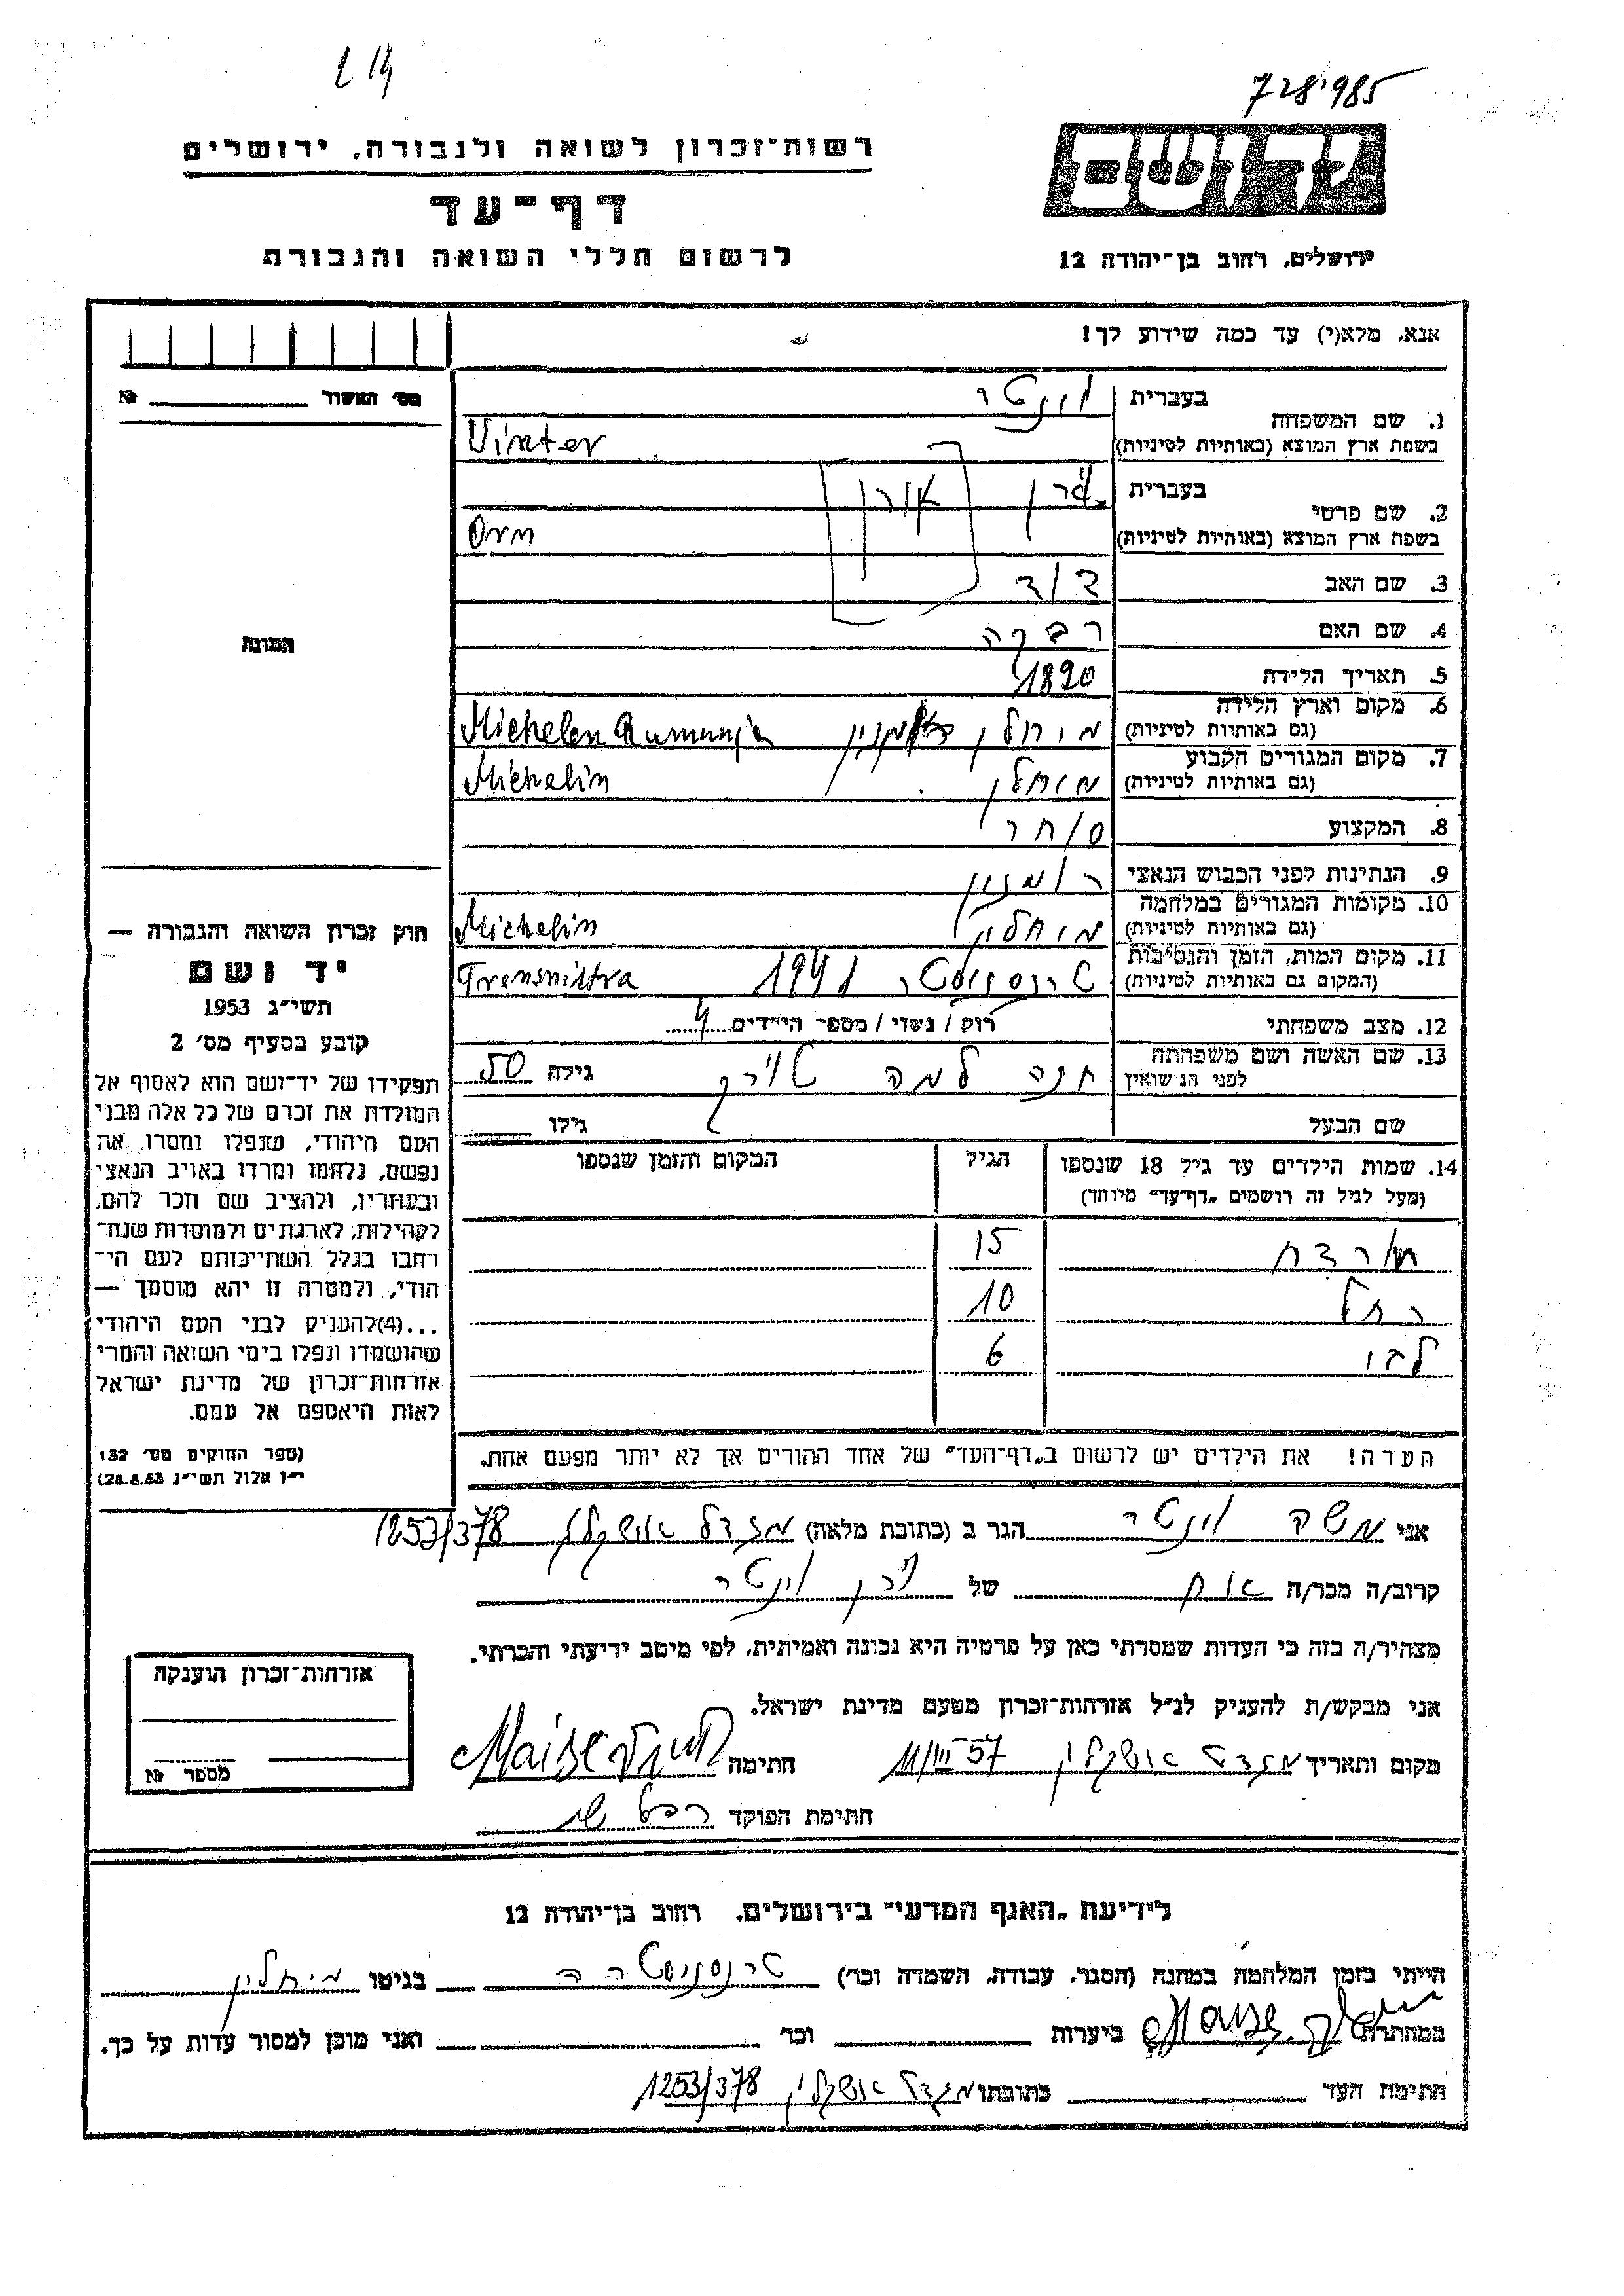 728985
רשות־זכרון לשואה ולגבורה, ירושלים
דף־עד
לרשום חללי השואה והגבורה
ירושלים, רחוב בן־יהודה 12
אנא, מלא(י) עד כמה שידוע לך!
מס' האשור № 
1. שם המשפחה
בעברית וינטר
בשפת ארץ המוצא (באותיות לטיניות) Vinter
2. שם פרטי
בעברית
בשפת ארץ המוצא (באותיות לטיניות) Orn
3. שם האב דוד
4. שם האם רבקה
5. תאריך הלידה 1890
6. מקום וארץ הלידה
(גם באותיות לטיניות) Michelen Rumunja
7. מקום המגורים הקבוע
(גם באותיות לטיניות) מיחלין Michelin
8. המקצוע סוחר
9. הנתינות לפני הכבוש הנאצי רומנין
10. מקומות המגורים במלחמה
(גם באותיות לטיניות) מיחלין Michelin
11. מקום המות, הזמן והנסיבות
(המקום גם באותיות לטיניות) 1941 Trensnistra
12. מצב משפחתי רוק / נשוי / מספר הילדים 4
13. שם האשה ושם משפחתה
לפני הנשואין חנה גילה 50
שם הבעל גילו
14. שמות הילדים עד גיל 18 שנספו
(מעל לגיל זה רושמים „דף־עד" מיוחד)
הגיל
המקום והזמן שנספו
15
רחל 10
6
הערה! את הילדים יש לרשום ב„דף־העד" של אחד ההורים אך לא יותר מפעם אחת.
התמונה
חוק זכרון השואה והגבורה —
יד ושם
תשי״ג 1953
קובע בסעיף מס' 2
תפקידו של יד־ושם הוא לאסוף אל
המולדת את זכרם של כל אלה מבני
העם היהודי, שנפלו ומסרו את
נפשם, נלחמו ומרדו באויב הנאצי
ובעוזריו, ולהציב שם וזכר להם,
לקהילות, לארגונים ולמוסדות שנח־
רבו בגלל השתייכותם לעם הי־
הודי, ולמטרה זו יהא מוסמך —
...(4) להעניק לבני העם היהודי
שהושמדו ונפלו בימי השואה והמרי
אזרחות־זכרון של מדינת ישראל
לאות היאספם אל עמם.
(ספר החוקים מס' 132
י״ז אלול תשי״ג 28.8.53)
אני משה וינטר הגר ב (כתובת מלאה) מגדל אשקלון 1253/378
קרוב/ה מכר/ה אח של וינטר
מצהיר/ה בזה כי העדות שמסרתי כאן על פרטיה היא נכונה ואמיתית, לפי מיטב ידיעתי והכרתי.
אני מבקש/ת להעניק לנ״ל אזרחות־זכרון מטעם מדינת ישראל.
מקום ותאריך מגדל אשקלון 57 חתימה
חתימת הפוקד
אזרחות־זכרון הוענקה
מספר №
לידיעת „האגף המדעי" בירושלים, רחוב בן־יהודה 12
הייתי בזמן המלחמה במחנה (הסגר, עבודה, השמדה וכו') טרנסניסטרה בגיטו מיחלין
במחתרת ביערות וכו' ואני מוכן למסור עדות על כך.
חתימת העד כתובתו מגדל אשקלון 1253/378